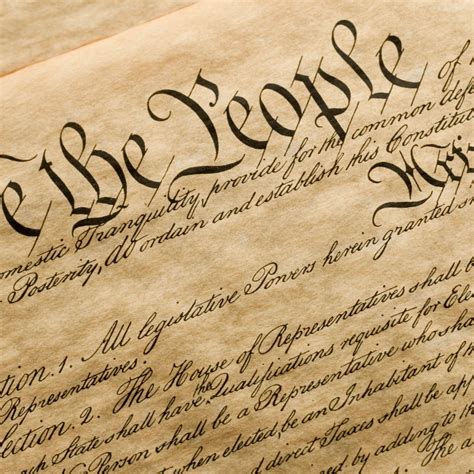 e the People of
omestic Tranquility, provide for the common defe
Posterity, do ordain and establish this Constitut
Arti
tion. 1. All legislative Powers herein granted s
Representatives.
ection. 2. The House of Representatives shall b
State shall have the Qualifications requisite for Ele
Person shall be a Representative who sha
when elected, be an Inhabitant of t
direct Taxes shall be ap
by adding to th